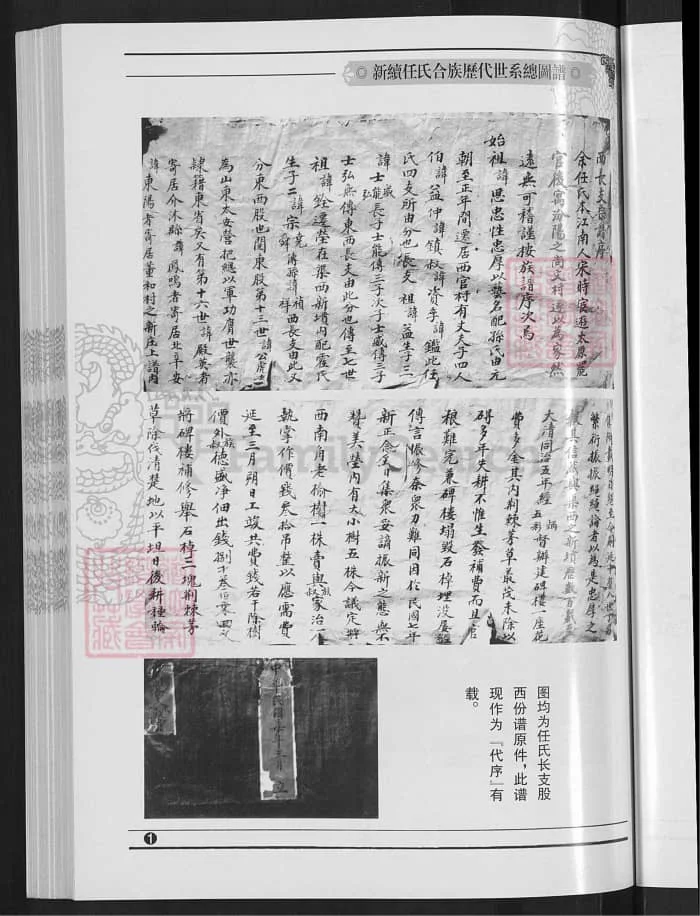 新續任氏合族歷代世系總圖譜
西長支齋譜序
余任氏本江南人宋時宦遊太原爲
官後寓汾陽之尚文村遂以為家然
遠無可稽謹按族譜序次焉
始祖諱思忠性忠厚以藝名配孫氏由元
朝至正年間遷居西官村有丈夫子四人
伯諱益仲諱鎮叔諱資季諱鑑此任
氏四支所由分也長支祖諱益生子三
諱士能長子士能傳三子次子士威傳三子
士弘無傳東西長支由此分也傳至七世
祖諱銓遷塋在渠西新墳內配霍氏
生子二諱宗堯舜
分東西股也閏東股第十三世諱公虎
為山東太安營把總以軍功賞世襲亦
隸籍東省矣又有第十六世諱殿英者
寄居介休縣諱鳳鳴者寄居北辛安
諱東陽者寄居董和村之新庄上譜內
繁衍振振繩繩論者以為是忠厚之
大清同治五年經 督辦建碑樓一座花
費多金其內荆棘茅草最院未除以
碍多年失耕不惟生發補費而且官
糧難完兼碑樓塌毀石棹埋沒屡經
傳言振修奈衆力難同因於民國七年
新正念 日集衆妥議振新之態無不
賛美塋內有大小樹五株今議定將
西南角老榆樹一株賣與族叔家治一
執掌作價錢叁拾吊整以應需費
延至三月朔日工竣共費錢若干除樹
價外族叔德盛淨佃出錢捌千
將碑樓補修舉石棹三塊荆棘茅
草除伐清楚地以平坦日後耕種輪
中華民國 年 月 立
图均为任氏长支股
西份谱原件，此谱
现作为『代序』有
载。
1